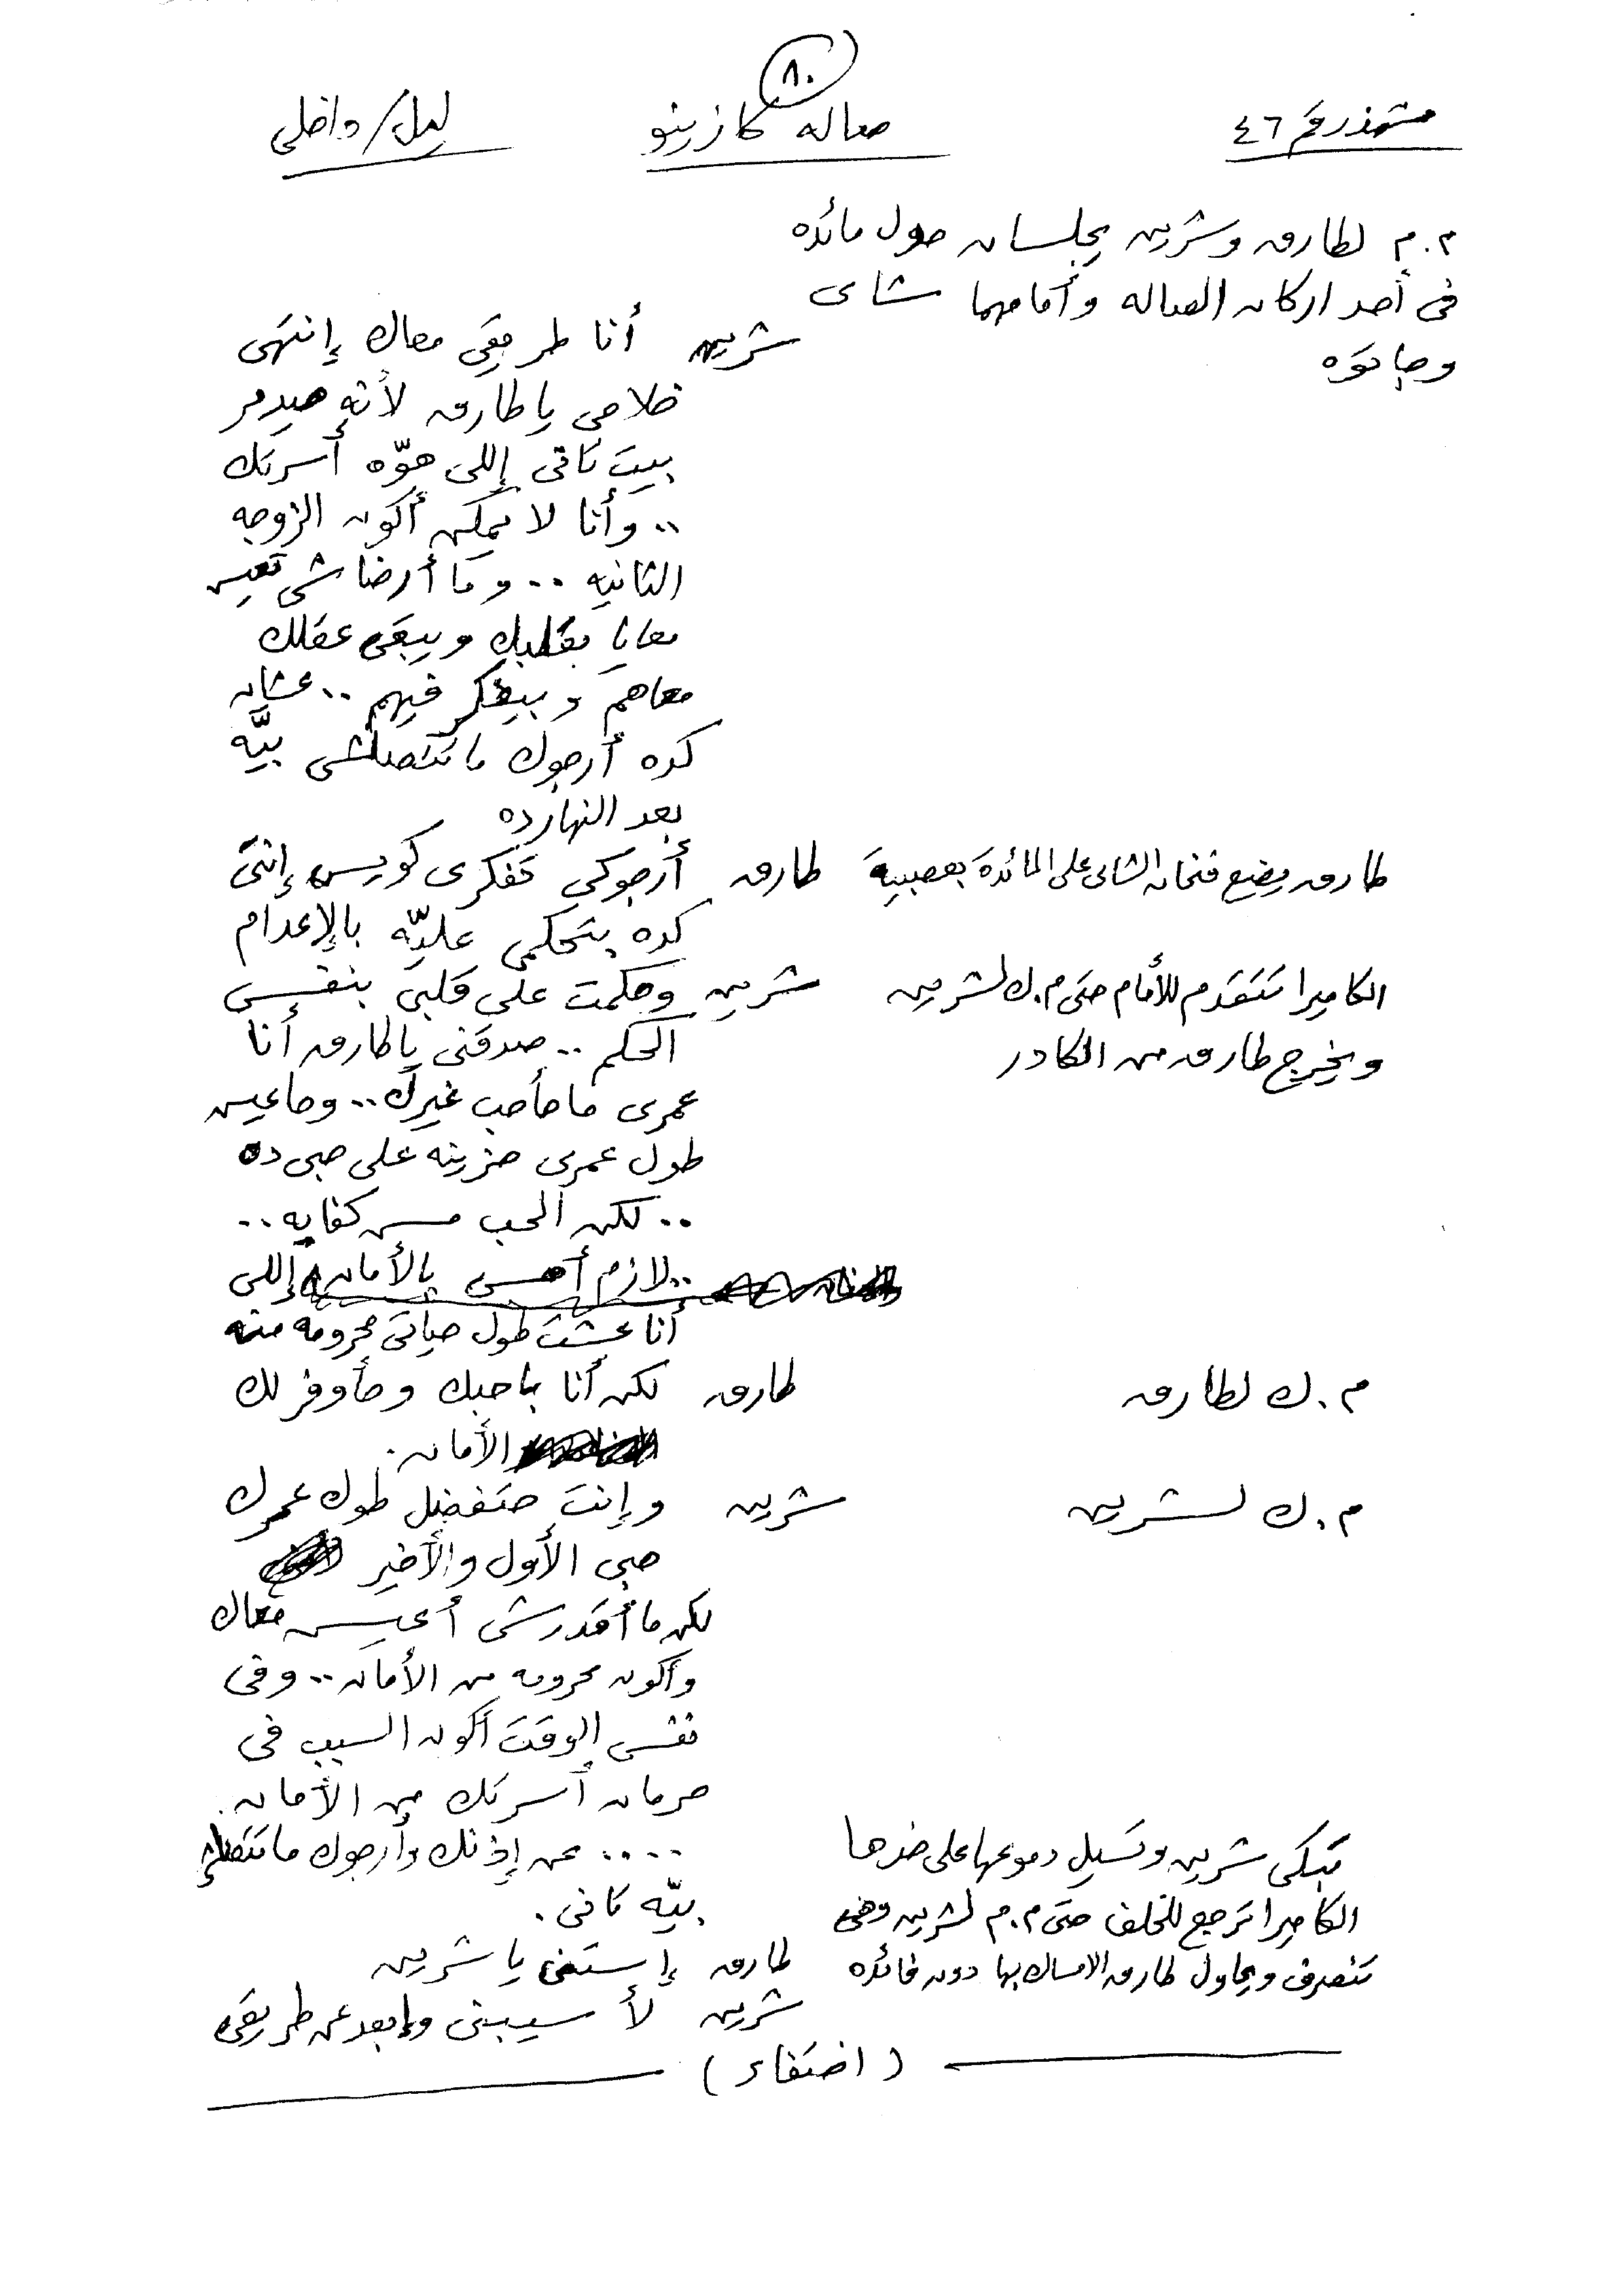 ٨٠
مشهد رقم ٤٦ صاله كازينو ليل/داخلى
م.م لطارق وشرين يجلسان حول مائده
فى أحد اركان الصاله وأمامهما شاى
وجاتوه
شرين أنا طريقى معاك إنتهى
خلاص يا طارق لأنه هيدمر
بيت تانى إللى هوّه أسرتك
.. وأنا لا يمكن أكون الزوجه
الثانيه .. وما أرضاشى تعيش
معايا بقلبك ويبقى عقلك
معاهم وبيفكر فيهم .. عشان
كده أرجوك ما تتصلشى بيّه
بعد النهارده
طارق يضع فنجان الشاى على المائدة بعصبية طارق أرجوكى تفكرى كويس إنتى
كده بتحكمى عليّه بالإعدام
الكاميرا تتقدم للأمام حتى م.ك لشرين شرين وحكمت على قلبى بنفس
ويخرج طارق من الكادر الحكم .. صدقنى يا طارق أنا
عمرى ما حأحب غيرك .. وحاعيش
طول عمرى حزينه على حبى ده
.. لكن الحب مش كفايه ..
.. لازم أحس بالأمان إللى
أنا عشت طول حياتى محرومه منه
م.ك لطارق طارق لكن أنا باحبك وحأوفر لك
الأمان.
م.ك لشرين شرين وإنت حتفضل طول عمرك
حبى الأول والأخير
لكن ما أقدرش أعيش معاك
وأكون محرومه من الأمان .. وفى
نفس الوقت أكون السبب فى
حرمان أسرتك من الأمان.
تبكى شرين وتسيل دموعها على خدها .... عن إذنك وأرجوك ما تتصلش
الكاميرا ترجع للخلف حتى م.م لشرين وهى بيّه تانى.
تنصرف ويحاول طارق الامساك بها دون فائده طارق إستنى يا شرين
شرين لأ سيبنى وإبعد عن طريقى
(اختفاء)